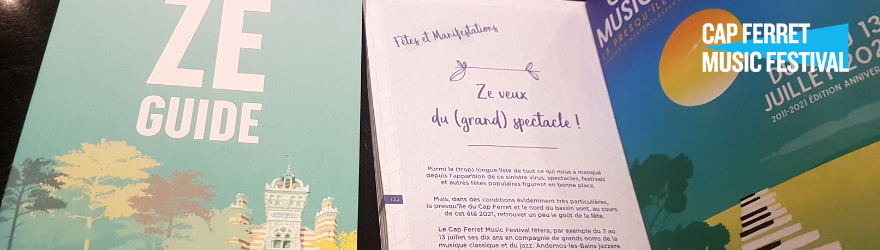 ZE
GUIDE
Fêtes et Manifestations
Ze veux
du (grand) spectacle !
Parmi la (trop) longue liste de tout ce qui nous a manqué
depuis l'apparition de ce sinistre virus, spectacles, festivals
et autres fêtes populaires figurent en bonne place.
Mais, dans des conditions évidemment très particulières,
la presqu'île du Cap Ferret et le nord du bassin vont, au cours
de cet été 2021, retrouver un peu le goût de la fête.
Le Cap Ferret Music Festival fêtera, par exemple du 7 au
13 juillet ses dix ans en compagnie de grands noms de la
musique classique et du jazz. Andernos-les-Bains jazzera
132
MUSIC
LA PRESQU'ÎLE
13
JUILLET 202
2011-2021 ÉDITION ANNIVER
CAP FERRET
MUSIC FESTIVAL